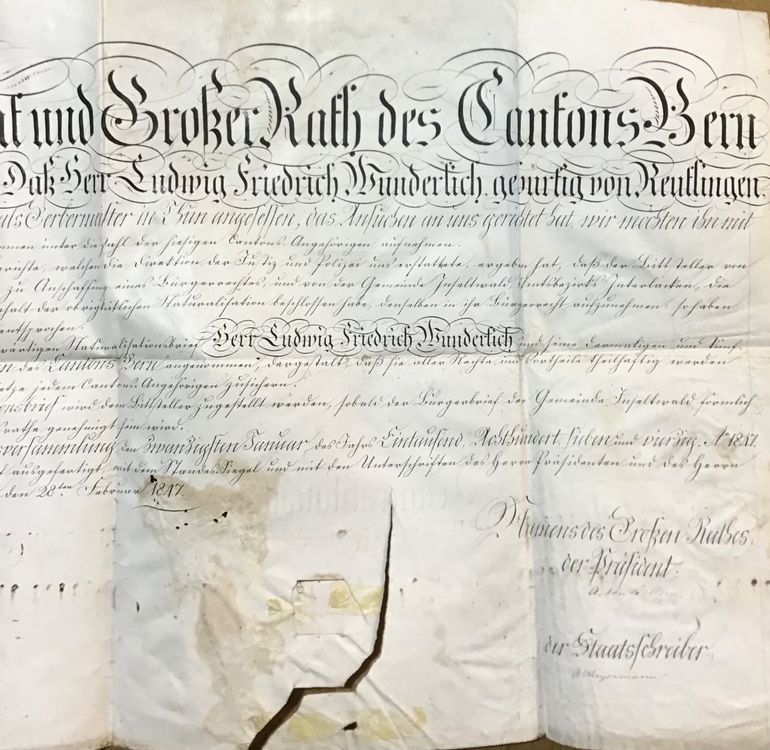 und Großer Rath des Cantons Bern
Daß Herr Ludwig Friedrich Wunderlich, gebürtig von Reutlingen,
als Gerbermeister in Thun angesessen, das Ansuchen an uns gerichtet hat, wir möchten ihn mit
unter die Zahl der hiesigen Cantons-Angehörigen aufnehmen.
welchen die Direktion der Justiz und Polizei uns erstattete, ergeben hat, daß der Bittsteller von
zu Anschaffung eines Bürgerrechtes, und von der Gemeinde Inseltwald, Amtsbezirks Interlaken, die
der obrigkeitlichen Naturalisation beschlossen habe, denselben in ihr Bürgerrecht aufzunehmen. so haben
entsprochen.
Naturalisationsbrief Herr Ludwig Friedrich Wunderlich und seine dermaligen und künf-
des Cantons Bern angenommen, dergestalt, daß sie aller Rechte und Vortheile theilhaftig werden
jedem Cantons-Angehörigen zusichern.
wird dem Bittsteller zugestellt werden, sobald der Bürgerbrief der Gemeinde Inseltwald förmlich
genehmigt sein wird.
versammlung den zwanzigsten Januar des Jahrs Eintausend, Achthundert, sieben und vierzig. A° 1847.
ausgefertigt, mit dem Standes-Siegel und mit den Unterschriften des Herrn Präsidenten und des Herrn
den 28ten Februar 1847.
Namens des Großen Rathes.
der Präsident:
der Staatsschreiber.